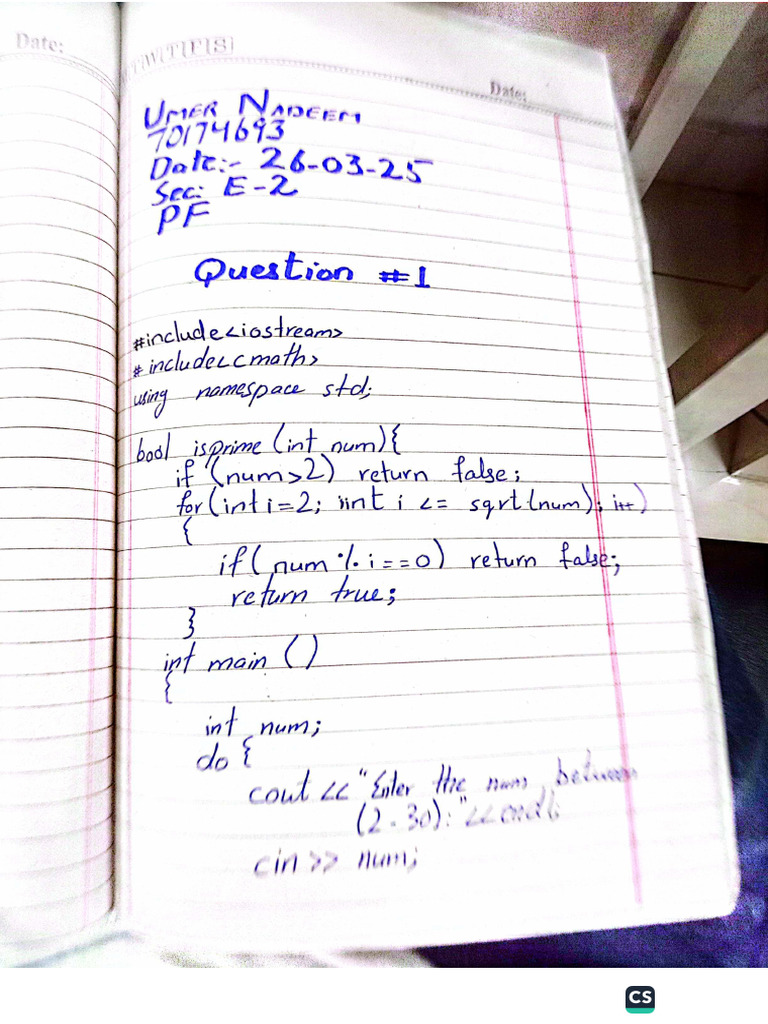 Date:
M T W T F S
Date:
UMER NADEEM
70174693
Date:- 26-03-25
Sec: E-2
PF
Question #1
#include<iostream>
#include<cmath>
using namespace std;
bool isprime (int num){
if (num>2) return false;
for(int i=2; int i <= sqrt(num); i++)
{
if(num % i==0) return false;
return true;
}
int main ()
{
int num;
do {
cout << "Enter the num between
(2-30): "<<endl;
cin >> num;
CS